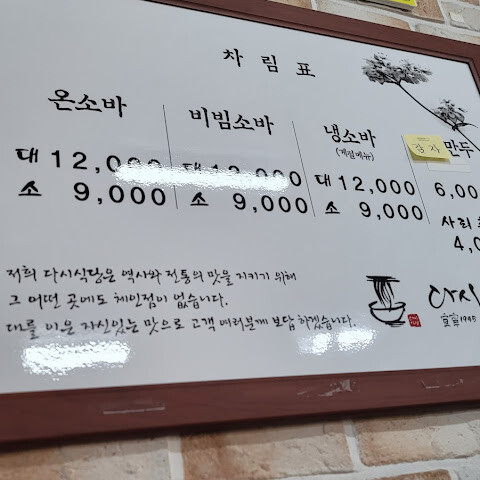 차림표
온소바
대 12,000
소 9,000
비빔소바
대 12,000
소 9,000
냉소바
(계절메뉴)
대 12,000
소 9,000
감자 만두
6,00
사리
4,0
저희 다시식당은 역사와 전통의 맛을 지키기 위해
그 어떤 곳에도 체인점이 없습니다.
대를 이은 자신있는 맛으로 고객 여러분께 보답 하겠습니다.
다시
1945